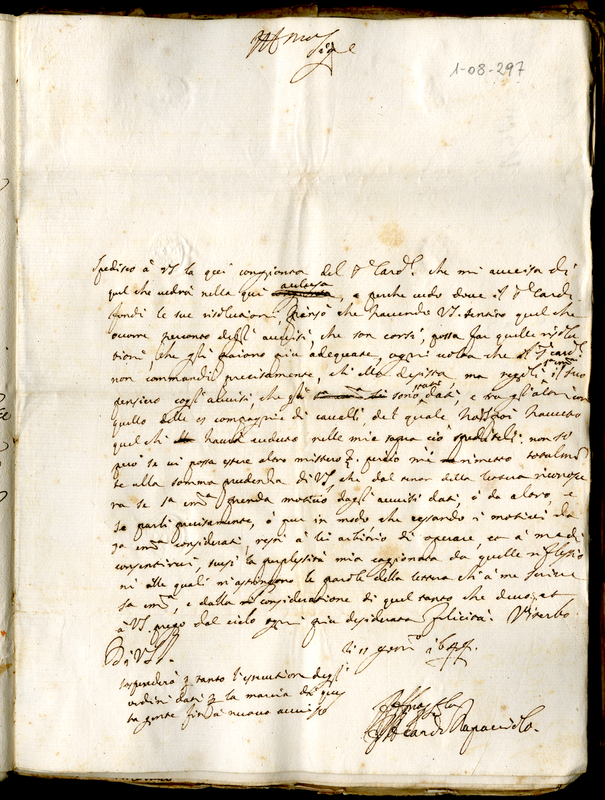 1-08-297
Spedisco à VS la qui congionta del Sr Card. che mi avvisa di
quel che vedrà nella qui aclusa, e perche vedo dove il Sr Card.
fondi le sue risolutioni, penso che havendo VS. sentito quel che
occorre per conto degli avvisi, che son corsi, possa far quelle risolu
tioni, che gli paiono più adequate, ogni volta che il Sr Card.
non commandi precisamente, ch'ella desista, ma regoli il suo
pensiero cogli avvisi, che gli sono stati dati, e tra gli altri con
quello delle compagnie di cavalli del quale havevo
quel ch' havrà veduto nelle mie sopra ciò speditoli. non so
però se vi possa essere altro mistero. perciò mi rimetto totalmen
te alla somma prudenza di VS, che dal tenor della lettera riconosce
rà se Sa Emza prenda motivo dagli avvisi dati, ò da altro, e
se parli precisamente, ò pur in modo che cessando i motivi da
Sa Emza considerati, resti à lei arbitrio di operare, et à me di
consentirvi, scusi la perplessità mia cagionata da quelle riflessio
ni alle quali m'astringono le parole della lettera ch'à me scrive
Sa Emza, e dalla consideratione di quel tanto che devo, et
à VS. prego dal cielo ogni più desiderata felicità. Viterbo
li 11 genro 1644.
Di VS.
sospenderà tanto l'esecution degli
ordini dati la marcia di ques
ta gente fin à nuovo avviso
Il Card. Rapaccioli.